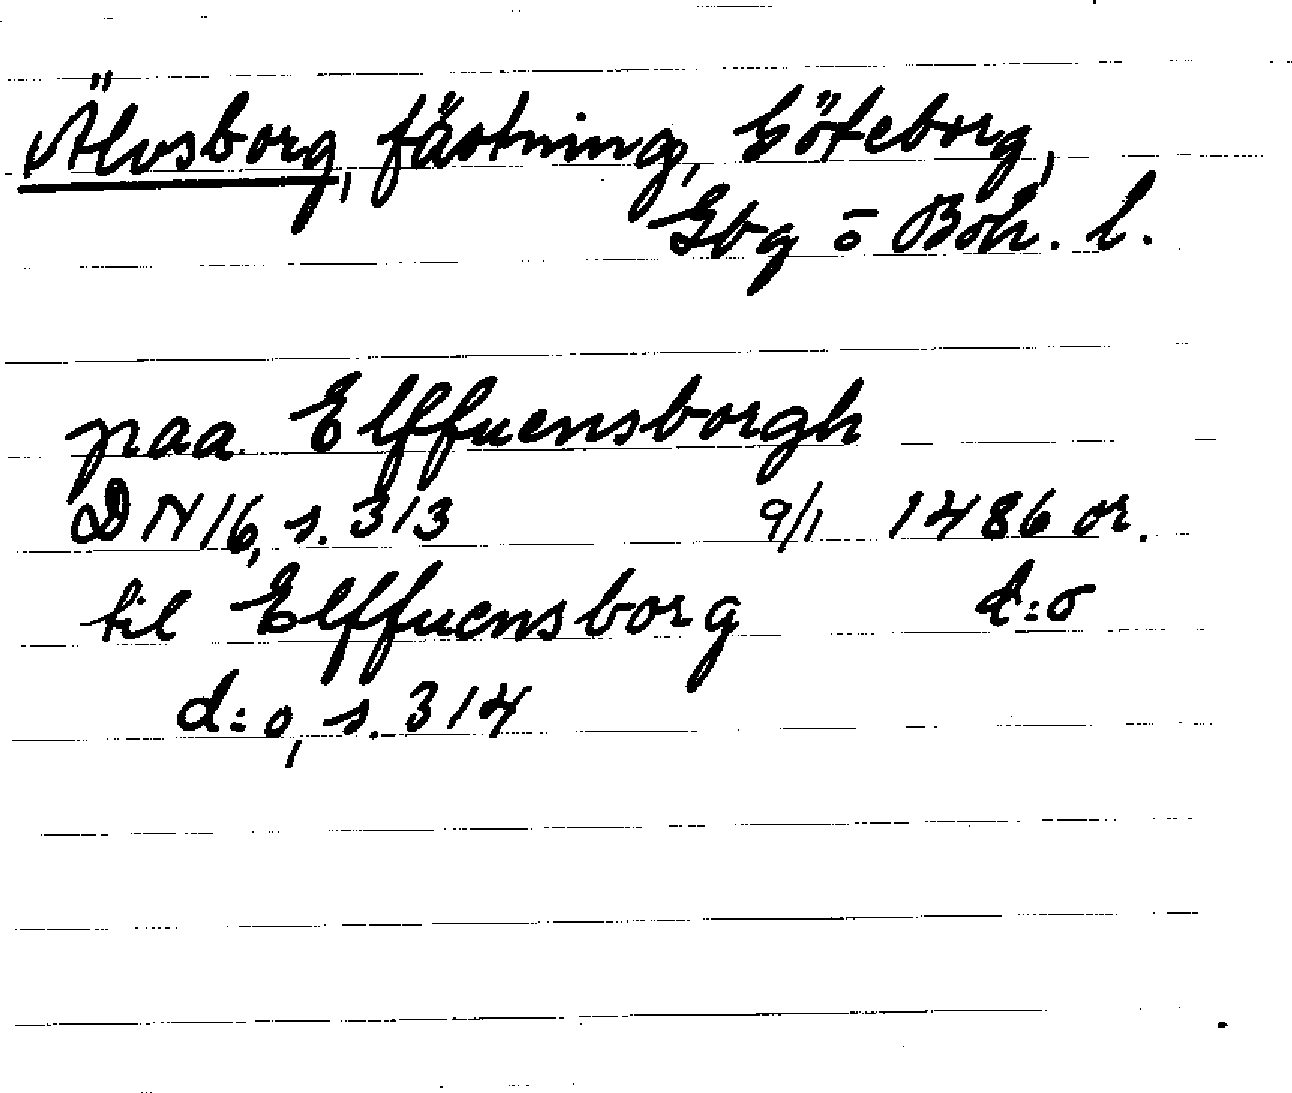 Älvsborg, fästning, Göteborg,
Gbg o Boh. l.
paa Elffuensborgh
DN 16, s. 313 9/1 1486 or.
til Elffuensborg d:o
d:o, s. 314